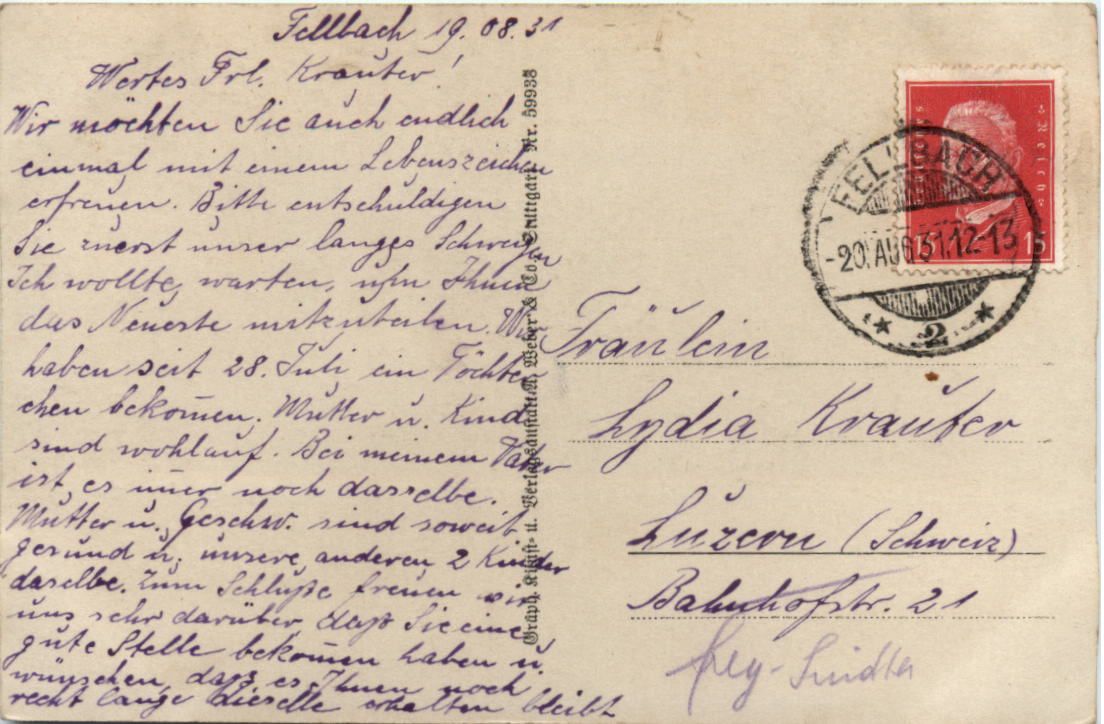 Fellbach 19.08.31
Wertes Frl. Krauter!
Wir möchten Sie auch endlich
einmal mit einem Lebenszeichen
erfreuen. Bitte entschuldigen
Sie zuerst unser langes Schweigen
Ich wollte warten, um Ihnen
das Neueste mitzuteilen. Wir
haben seit 28. Juli ein Töchter
chen bekom̄en. Mutter u. Kind
sind wohlauf. Bei meinem Vater
ist es im̄er noch dasselbe.
Mutter u. Geschw. sind soweit
gesund u. unsere anderen 2 Kinder
daselbe. Zum Schluße freuen wir
uns sehr darüber, daß Sie eine
gute Stelle bekom̄en haben u.
wünschen, dass es Ihnen noch
recht lange dieselbe erhalten bleibt
Graph. Kunst- u. Verlagsanstalt A. Weber & Co., Stuttgart Nr. 59933
15 15
FELLBACH
-20.AUG31.12-13
* 2 *
Fräulein
Lydia Krauter
Luzern (Schweiz)
Bahnhofstr. 21